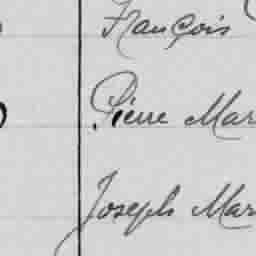 François
Pierre Mar
Joseph Mar